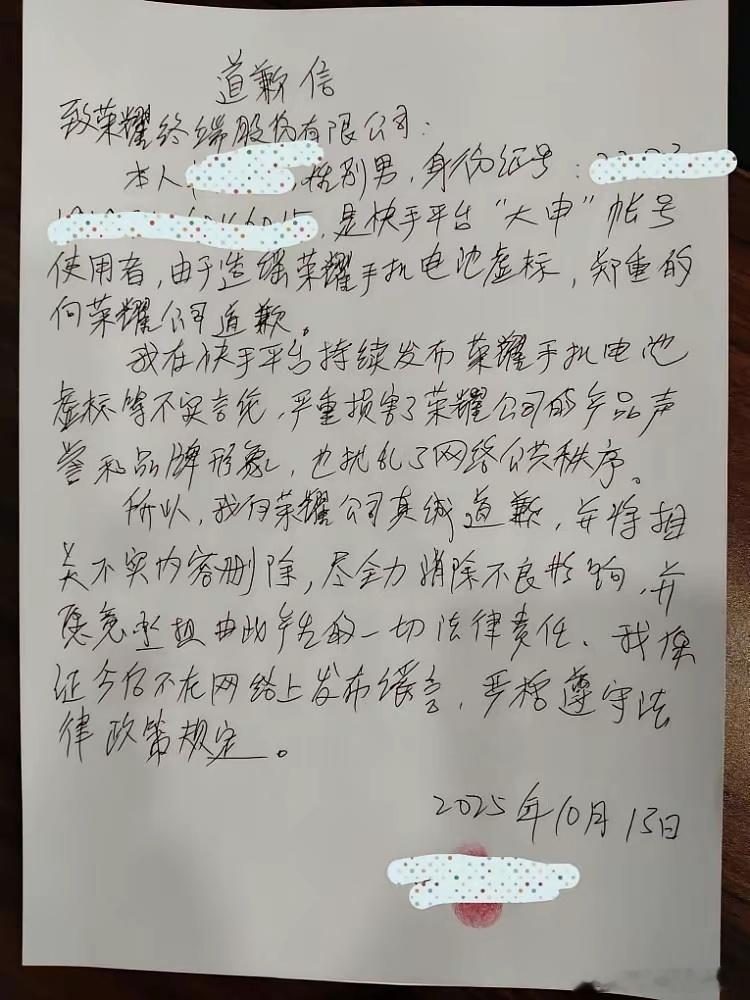 道歉信
致荣耀终端股份有限公司：
本人，性别男，身份证号：
，是快手平台“大申”帐号
使用者，由于造谣荣耀手机电池虚标，郑重的
向荣耀公司道歉。
我在快手平台持续发布荣耀手机电池
虚标等不实言论，严重损害了荣耀公司的产品声
誉和品牌形象，也扰乱了网络公共秩序。
所以，我向荣耀公司真诚道歉，并将相
关不实内容删除，尽全力消除不良影响，并
愿意承担由此产生的一切法律责任、我保
证今后不在网络上发布谣言，严格遵守法
律政策规定。
2025年10月13日